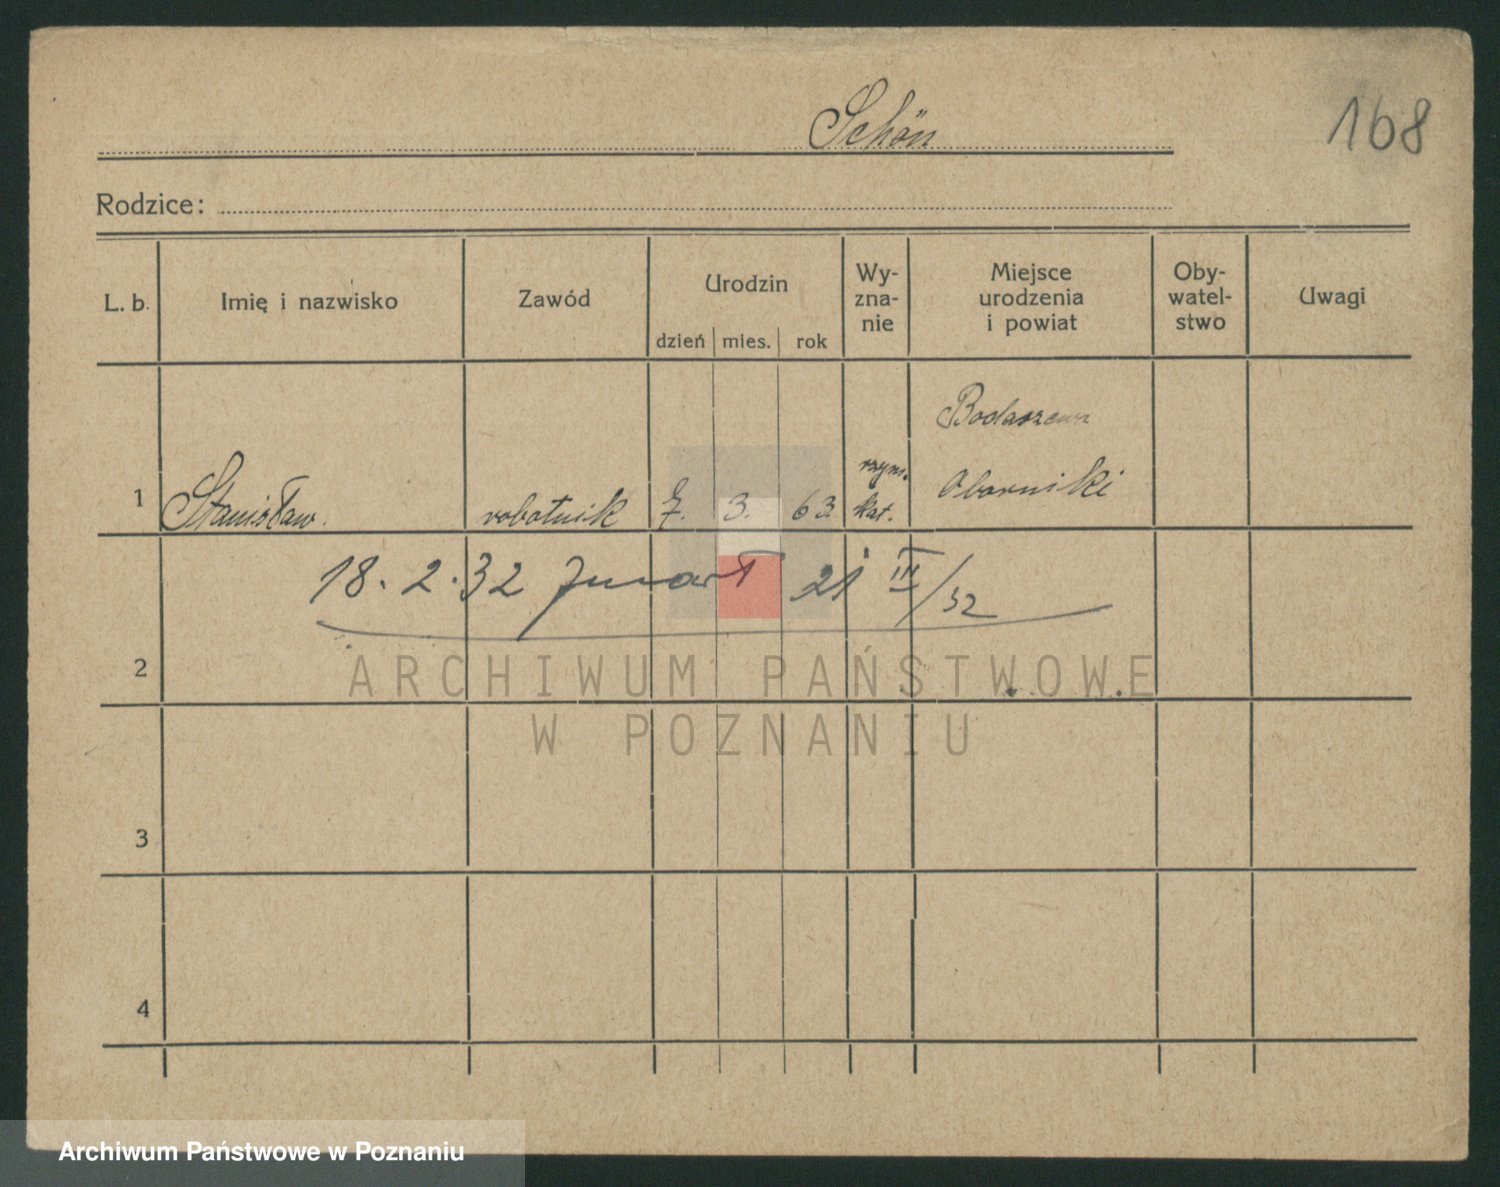 Schön
168
Rodzice:
L. b. Imię i nazwisko Zawód Urodzin dzień mies. rok Wy-zna-nie Miejsce urodzenia i powiat Oby-watel-stwo Uwagi
Bodaszewo
1 Stanisław. robotnik 7. 3. 63 rzym. kat. Oborniki
18. 2. 32 zmarł 21 III/32
2
ARCHIWUM PAŃSTWOWE
W POZNANIU
3
4
Archiwum Państwowe w Poznaniu